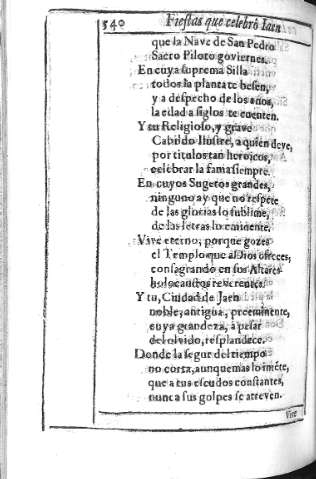 540 Fiestas que celebrò Iaen
que la Nave de San Pedro
Sacro Piloto goviernes.
En cuya suprema Silla
todos la planta te besen,
y a despecho de los años,
la edad a siglos te cuenten.
Y tu Religioso, y grave
Cabildo Ilustre, a quien deve,
por titulos tan heroicos,
celebrar la fama siempre.
En cuyos Sugetos grandes,
ninguno ay que no respete
de las glorias lo sublime,
de las letras lo eminente.
Vive eterno, porque gozes
el Templo que a Dios ofreces,
consagrando en sus Altares
holocaustos reverentes.
Y tu, Ciudad de Jaen
noble, antigua, preeminente,
cuya grandeza, a pesar
del olvido, resplandece.
Donde la segur del tiempo
no corta, aunque mas lo intéte,
que a tus escudos constantes,
nunca sus golpes se atreven.
Vive